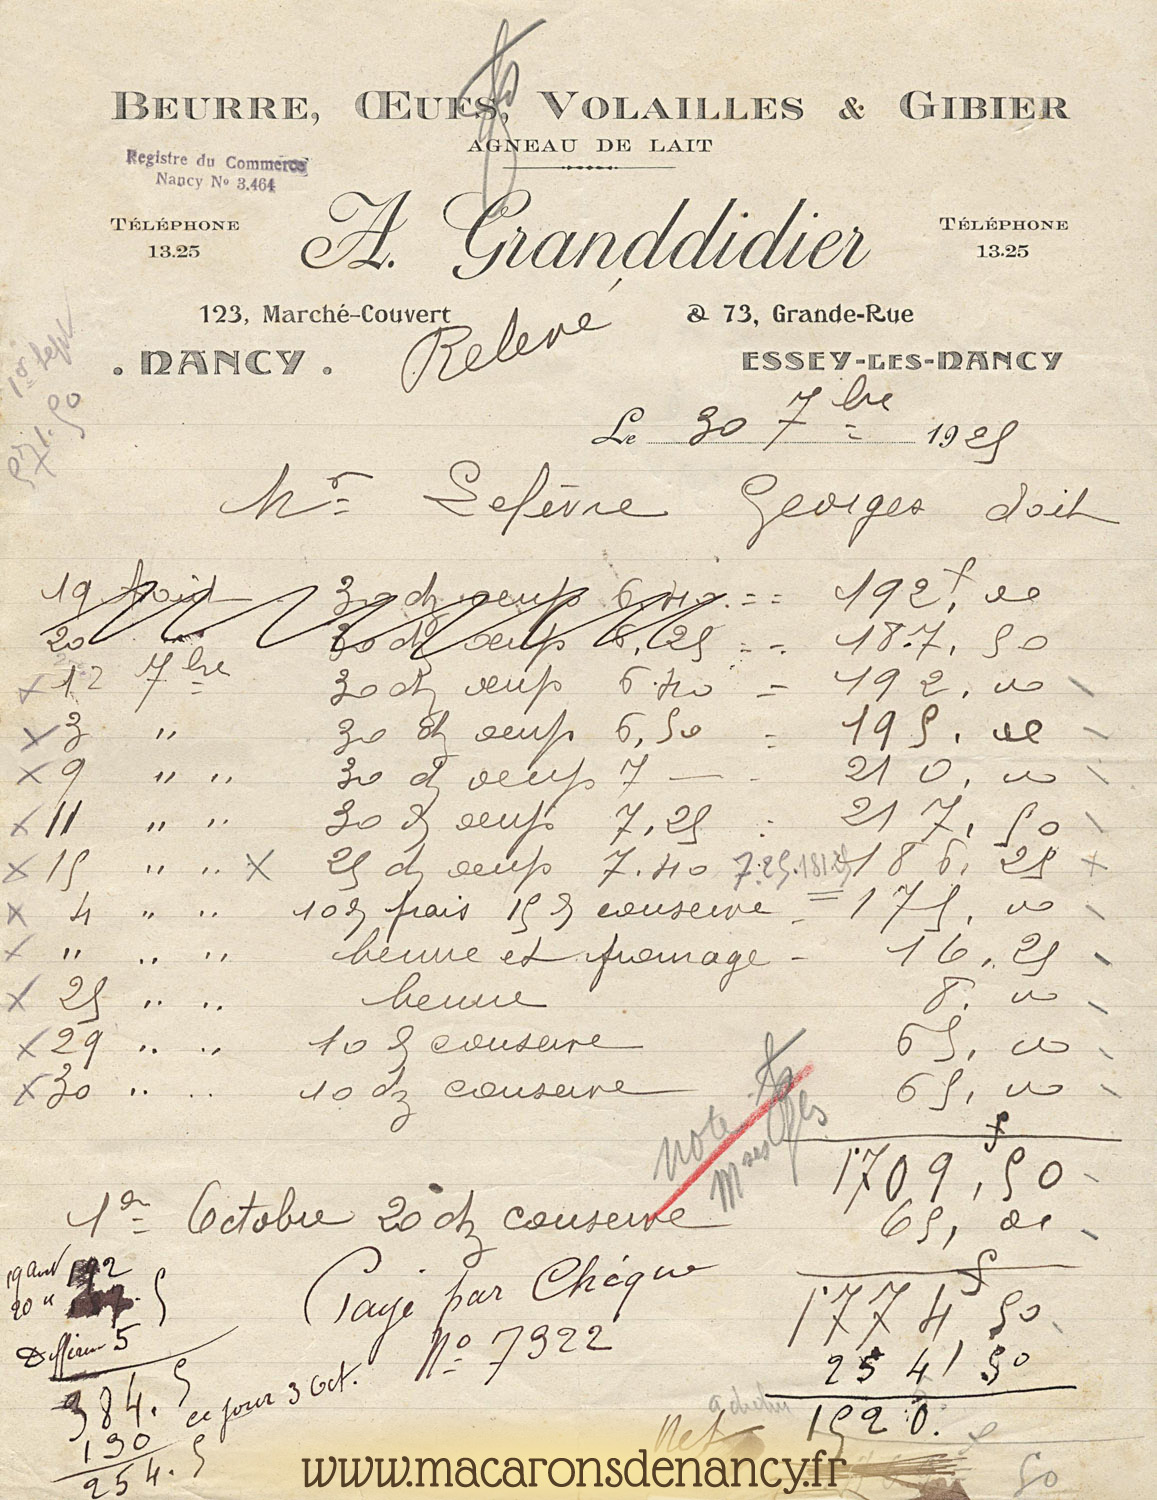 BEURRE, ŒUFS, VOLAILLES & GIBIER
AGNEAU DE LAIT
Registre du Commerce
Nancy No 3.464
TÉLÉPHONE
13.25
A. Granddidier
TÉLÉPHONE
13.25
123, Marché-Couvert
& 73, Grande-Rue
. NANCY .
Relevé
ESSEY-LES-NANCY
1er Sept
571.50
Le 30 7bre 1925
Mr Lefèvre Georges doit
19 Août 30 dz oeufs 6,40 = 192f, 00
20 30 dz oeufs 6,25 = 187, 50
x 12 7bre 30 dz oeufs 6.40 = 192, 00
x 3 " 30 dz oeufs 6,50 = 195, 00
x 9 " " 30 dz oeufs 7 — 210, 00
x 11 " " 30 dz oeufs 7,25 : 217, 50
x 15 " " x 25 dz oeufs 7.40 7.25.181.25 186, 25 x
x 4 " " 10 dz frais 15 dz conserve = 175, 00
x " " " beurre et fromage - 16, 25
x 25 " " beurre 8, 00
x 29 " " 10 dz conserve 65, 00
x 30 " " 10 dz conserve 65, 00
note
mses
1709f,50
1er Octobre 20 dz conserve 65, 00
19 août 192
20 " 187.5
Différence 5
Payé par Chéque
No 7922
1774f,50
254,50
384.5
ce jour 3 Oct.
130
254.5
Net 1520.
50
www.macaronsdenancy.fr